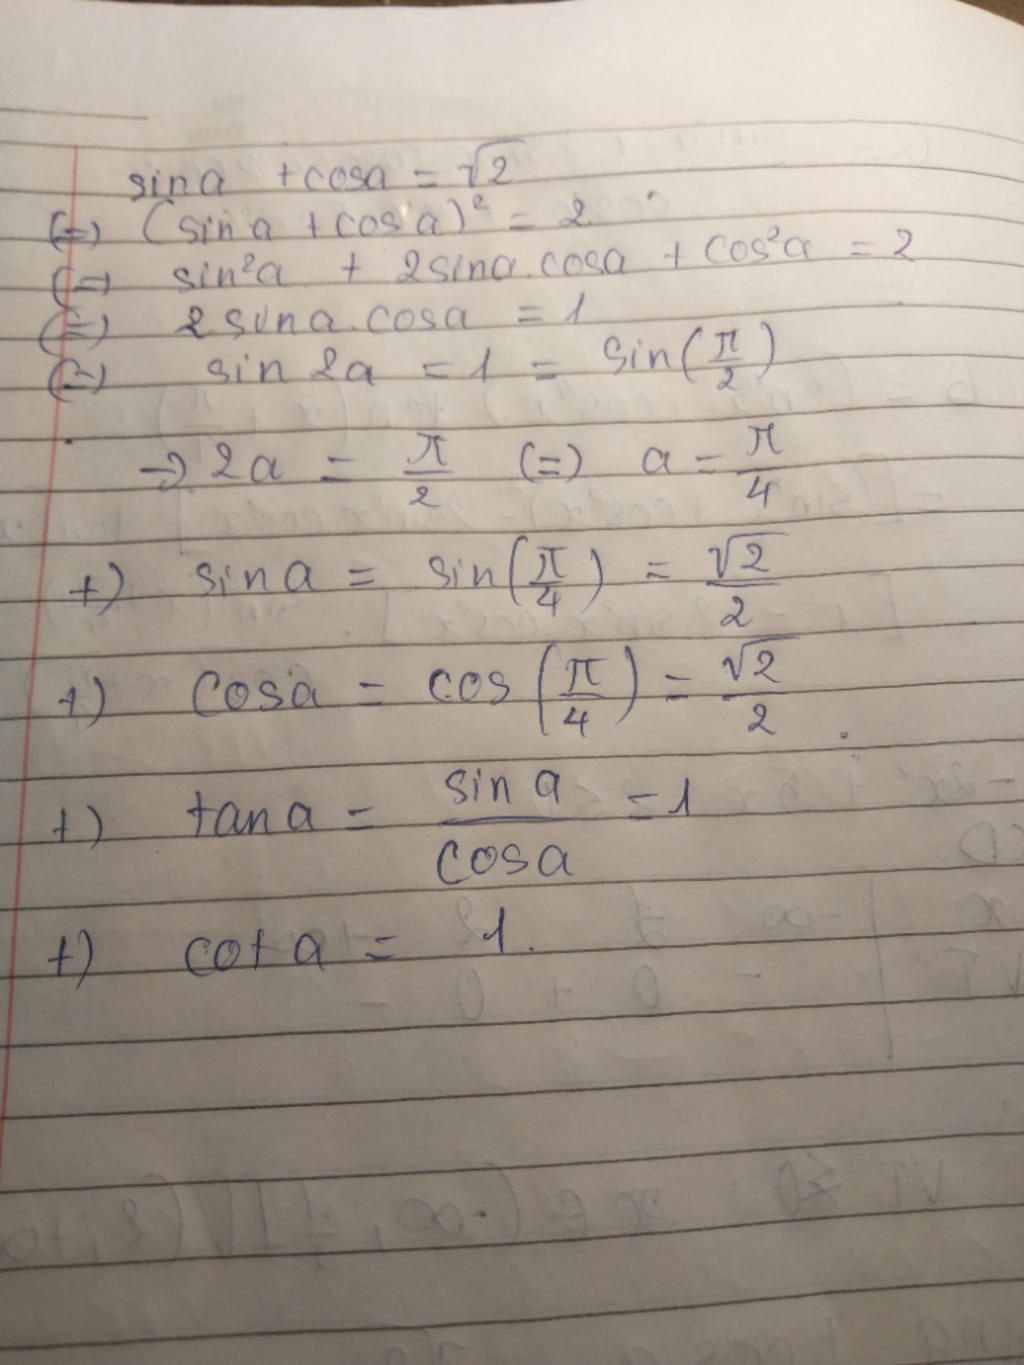 sina + cosa = √2
(=) (sina + cosa)² = 2
(=) sin²a + 2sina.cosa + cos²a = 2
(=) 2sina.cosa = 1
(=) sin2a = 1 = sin(π/2)
→ 2a = π/2 (=) a = π/4
+) sina = sin(π/4) = √2/2
+) cosa = cos(π/4) = √2/2
+) tana = sina/cosa = 1
+) cota = 1.